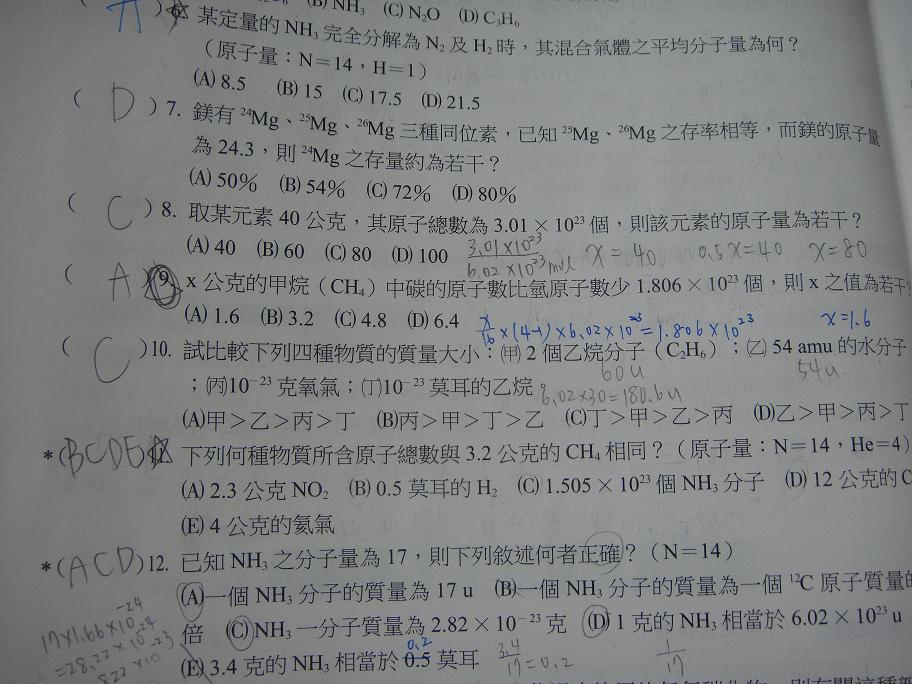 (B) NH₃ (C) N₂O (D) C₃H₆
(A) 6. 某定量的 NH₃ 完全分解為 N₂ 及 H₂ 時，其混合氣體之平均分子量為何？
（原子量：N＝14，H＝1）
(A) 8.5 (B) 15 (C) 17.5 (D) 21.5
( D ) 7. 鎂有 ²⁴Mg、²⁵Mg、²⁶Mg 三種同位素，已知 ²⁵Mg、²⁶Mg 之存率相等，而鎂的原子量
為 24.3，則 ²⁴Mg 之存量約為若干？
(A) 50% (B) 54% (C) 72% (D) 80%
( C ) 8. 取某元素 40 公克，其原子總數為 3.01 × 10²³ 個，則該元素的原子量為若干？
(A) 40 (B) 60 (C) 80 (D) 100 3.01×10²³ / 6.02×10²³ mol x = 40 0.5x=40 x=80
( A ) 9. x 公克的甲烷（CH₄）中碳的原子數比氫原子數少 1.806 × 10²³ 個，則 x 之值為若干
(A) 1.6 (B) 3.2 (C) 4.8 (D) 6.4 x/16 ×(4-1)×6.02×10²³=1.806×10²³ x=1.6
( C ) 10. 試比較下列四種物質的質量大小：㈙ 2 個乙烷分子（C₂H₆）；㈚ 54 amu 的水分子
60u 54u
；㈛10⁻²³ 克氧氣；㈜10⁻²³ 莫耳的乙烷。 6.02×30=180.6u
(A)甲＞乙＞丙＞丁 (B)丙＞甲＞丁＞乙 (C)丁＞甲＞乙＞丙 (D)乙＞甲＞丙＞丁
*(BCDE) 11. 下列何種物質所含原子總數與 3.2 公克的 CH₄ 相同？（原子量：N＝14，He＝4）
(A) 2.3 公克 NO₂ (B) 0.5 莫耳的 H₂ (C) 1.505 × 10²³ 個 NH₃ 分子 (D) 12 公克的 C
(E) 4 公克的氦氣
*(ACD) 12. 已知 NH₃ 之分子量為 17，則下列敘述何者正確？（N＝14）
(A)一個 NH₃ 分子的質量為 17 u (B)一個 NH₃ 分子的質量為一個 ¹²C 原子質量的
倍 (C)NH₃ 一分子質量為 2.82 × 10⁻²³ 克 (D) 1 克的 NH₃ 相當於 6.02 × 10²³ u
17×1.66×10⁻²⁴
=28.22×10⁻²⁴
0.2
(E) 3.4 克的 NH₃ 相當於 0.5 莫耳 3.4/17=0.2 1/17